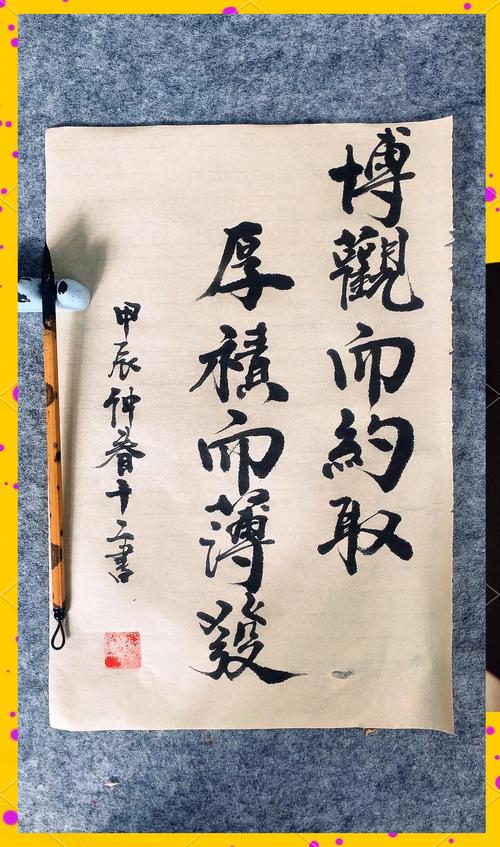 博觀而約取
厚積而薄發
甲辰仲春十二書